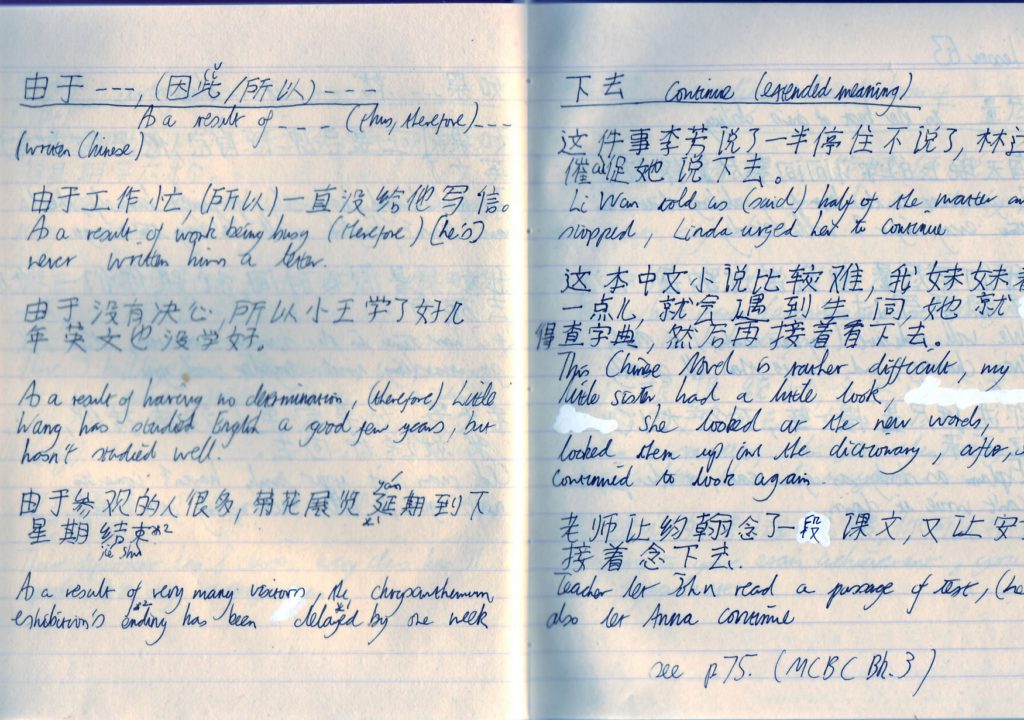 cǐ
由于 ---, (因此/所以) ---
As a result of ---- (thus, therefore)---
(written Chinese)
由于工作忙, (所以)一直没给他写信。
As a result of work being busy (therefore) (he's)
never written him a letter.
由于没有决心, 所以小王学了好几
年英文也没学好。
As a result of having no determination, (therefore) Little
Wang has studied English a good few years, but
hasn't studied well.
yán
由于参观的人很多, 菊花展览延期到下
*1
星期结束*2
jié shù
As a result of very many visitors, the chrysanthemum
exhibition's ending*2 has been delayed*1 by one week
下去 continue (extended meaning)
这件事李芳说了一半停住不说了, 林达
催cuī促她说下去。
Li Wan told us (said) half of the matter an
stopped, Linda urged her to continue
这本中文小说比较难, 我妹妹看
一点儿, 就会遇到生词 她就
得查字典, 然后再接着看下去。
This Chinese Novel is rather difficult, my
little sister, had a little look,
she looked at the new words,
looked them up in the dictionary, after,
continued to look again.
老师让约翰念了一段课文, 又让安
接着念下去.
Teacher let John read a passage of text, (he
also let Anna continue
see p75. (MCBC Bk.3)